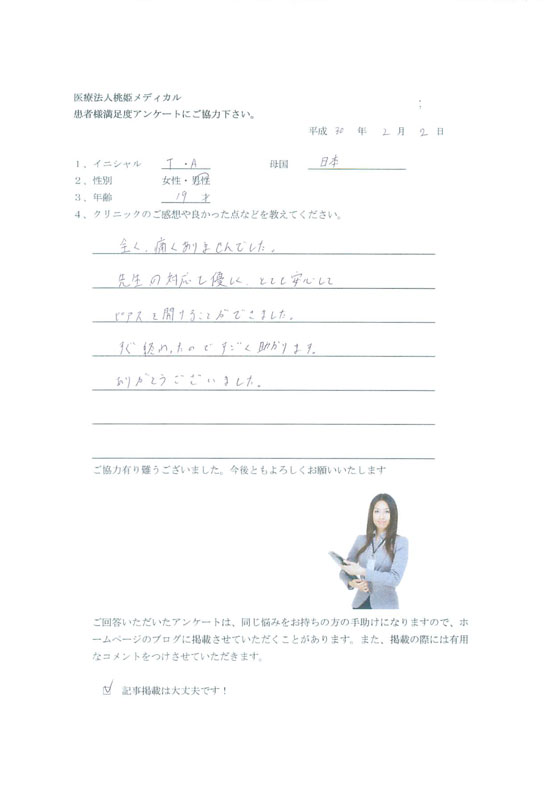 医療法人桃姫メディカル
患者様満足度アンケートにご協力下さい。
平成 30 年 2 月 2 日
1、イニシャル T・A 母国 日本
2、性別 女性・男性
3、年齢 19 才
4、クリニックのご感想や良かった点などを教えてください。
全く、痛くありませんでした。
先生の対応も優しく、とても安心して
ピアスを開けることができました。
すぐ終わったのですごく助かります。
ありがとうございました。
ご協力有り難うございました。今後ともよろしくお願いいたします
ご回答いただいたアンケートは、同じ悩みをお持ちの方の手助けになりますので、ホ
ームページのブログに掲載させていただくことがあります。また、掲載の際には有用
なコメントをつけさせていただきます。
記事掲載は大丈夫です！